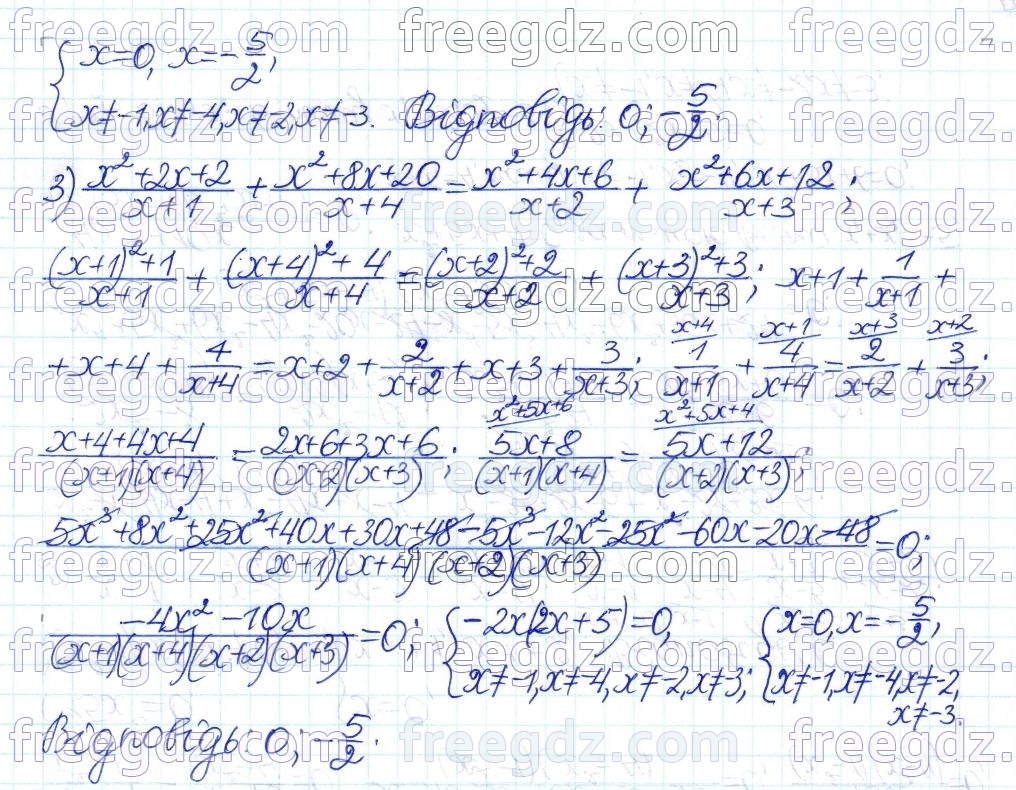 { x=0, x=-5/2;
{ x≠-1, x≠-4, x≠-2, x≠-3. Відповідь: 0; -5/2.
3) (x²+2x+2)/(x+1) + (x²+8x+20)/(x+4) = (x²+4x+6)/(x+2) + (x²+6x+12)/(x+3);
((x+1)²+1)/(x+1) + ((x+4)²+4)/(x+4) = ((x+2)²+2)/(x+2) + ((x+3)²+3)/(x+3); x+1+1/(x+1) +
+x+4+4/(x+4) = x+2+2/(x+2)+x+3+3/(x+3); x+4/ 1/(x+1) + x+1/ 4/(x+4) = x+3/ 2/(x+2) + x+2/ 3/(x+3);
(x+4+4x+4)/((x+1)(x+4)) = (2x+6+3x+6)/((x+2)(x+3)); x²+5x+6/ (5x+8)/((x+1)(x+4)) = x²+5x+4/ (5x+12)/((x+2)(x+3));
(5x³+8x²+25x²+40x+30x+48-5x³-12x²-25x²-60x-20x-48)/((x+1)(x+4)(x+2)(x+3)) = 0;
(-4x²-10x)/((x+1)(x+4)(x+2)(x+3)) = 0; { -2x(2x+5)=0, { x=0, x=-5/2,
{ x≠-1, x≠-4, x≠-2, x≠3; { x≠-1, x≠-4, x≠-2,
x≠-3.
Відповідь: 0; -5/2.
freegdz.com freegdz.com freegdz.